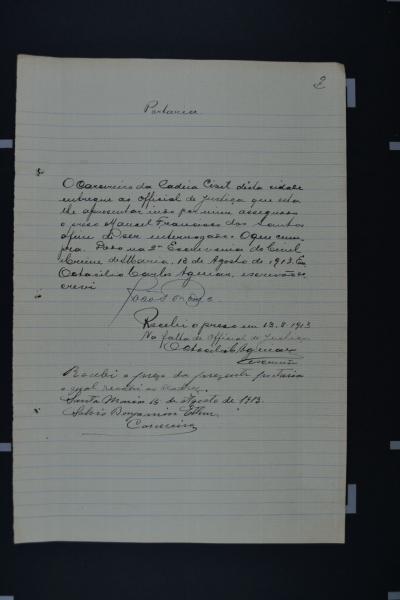 2
Portaria
O Carcereiro da Cadeia Civil desta cidade
entregue ao official de justiça que esta
lhe apresentar indo por mim assignado
o preso Manuel Francisco dos Santos
afim de ser interrogado. O que cum-
pra. Dado na 2ª Escrivania do Civil
Crime de S. Maria, 13 de Agosto de 1913. Eu
Octacilio Carlos Aguiar, escrivão es-
crevi
Recebi o preso em 13-8-1913
Na falta de official de justiça
Octacilio C. Aguiar
Escrivão
Recebi o preso da presente portaria
o qual recolhi ao
Santa Maria 15 de Agosto de 1913.
Benjamim
Carcereiro